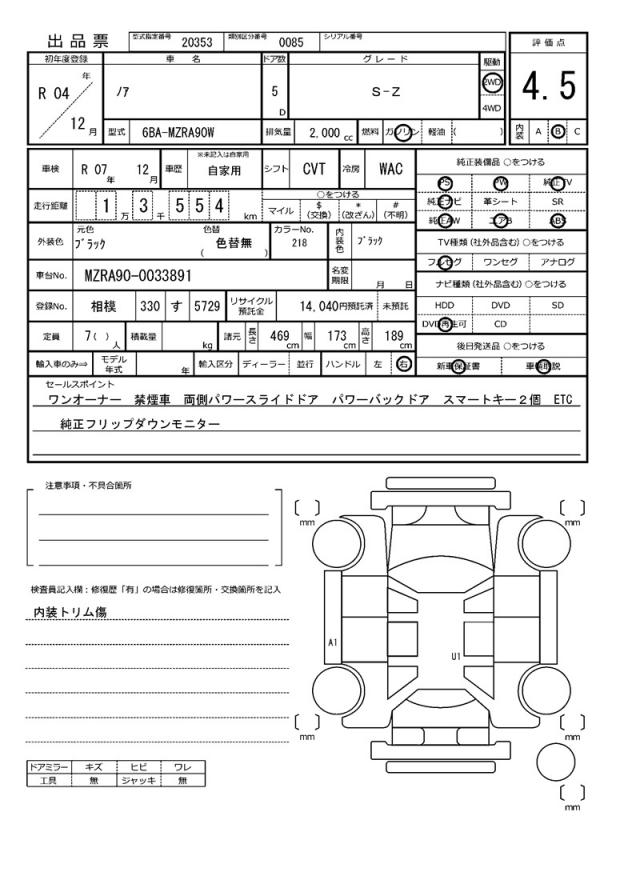 出品票 型式指定番号 20353 類別区分番号 0085 シリアル番号
初年度登録 車名 ドア数 グレード 駆動 評価点
R 04 年 12 月 ﾉｱ 5 D S-Z 2WD 4WD 4.5
型式 6BA-MZRA90W 排気量 2,000 cc 燃料 ガソリン 軽油 ( ) 内装 A B C
車検 R 07 年 12 月 車歴 ※未記入は自家用 自家用 シフト CVT 冷房 WAC
純正装備品 ○をつける
PS PW 純正TV
純正ナビ 革シート SR
純正AW エアB ABS
走行距離 1 万 3 千 5 5 4 km
○をつける
マイル $ (交換) * (改ざん) # (不明)
外装色 元色 ﾌﾞﾗｯｸ 色替 ( 色替無 ) カラーNo. 218 内装色 ﾌﾞﾗｯｸ
TV種類 (社外品含む) ○をつける
フルセグ ワンセグ アナログ
車台No. MZRA90-0033891 名変期限 月 日
ナビ種類 (社外品含む) ○をつける
HDD DVD SD
DVD再生可 CD
登録No. 相模 330 す 5729 リサイクル預託金 14,040円預託済 未預託
定員 7( ) 人 積載量 kg 諸元 長さ 469 cm 幅 173 cm 高さ 189 cm
後日発送品 ○をつける
新車保証書 車輌取説
輸入車のみ⇒ モデル年式 年 輸入区分 ディーラー 並行 ハンドル 左 右
セールスポイント
ワンオーナー 禁煙車 両側パワースライドドア パワーバックドア スマートキー２個 ETC
純正フリップダウンモニター
注意事項・不具合箇所
検査員記入欄：修復歴「有」の場合は修復箇所・交換箇所を記入
内装トリム傷
A1 U1
mm mm
mm mm
mm
ドアミラー キズ ヒビ ワレ
工具 無 ジャッキ 無